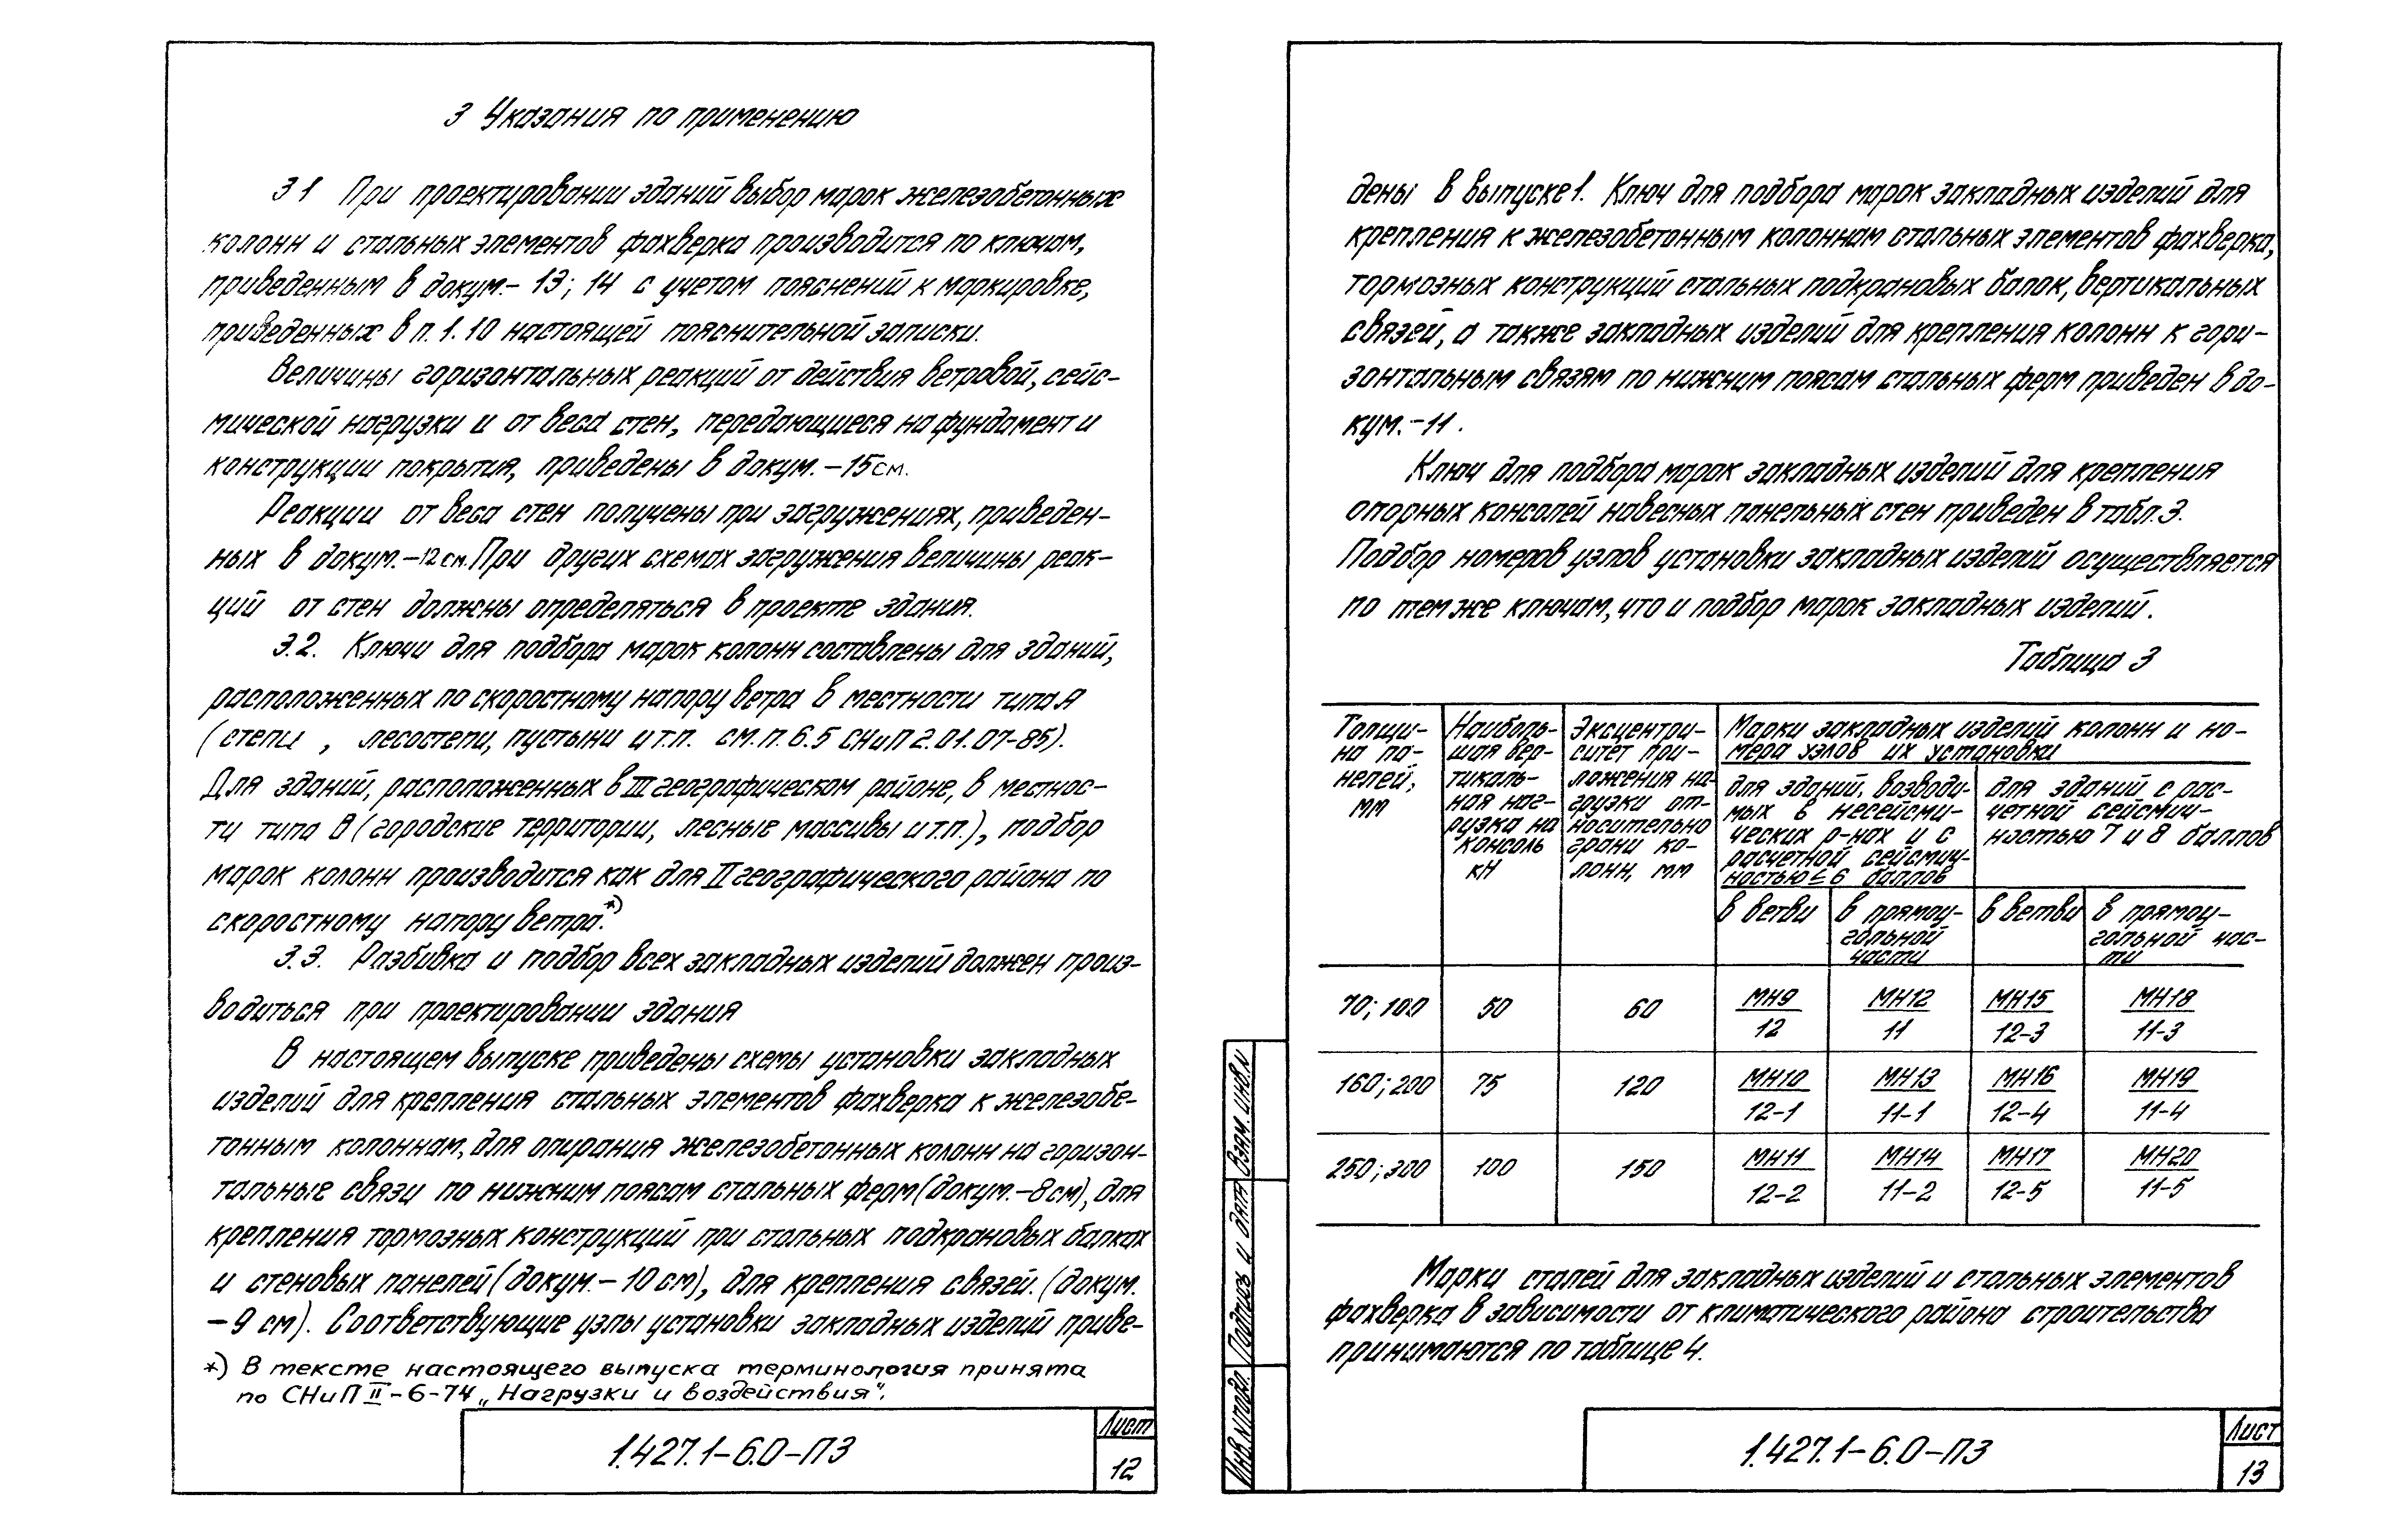 3 Указания по применению
3.1 При проектировании зданий выбор марок железобетонных
колонн и стальных элементов фахверка производится по ключам,
приведенным в докум.- 13; 14 с учетом пояснений к маркировке,
приведенных в п. 1.10 настоящей пояснительной записки.
Величины горизонтальных реакций от действия ветровой, сейс-
мической нагрузки и от веса стен, передающиеся на фундамент и
конструкции покрытия, приведены в докум. -15см.
Реакции от веса стен получены при загружениях, приведен-
ных в докум.-12см. При других схемах загружения величины реак-
ций от стен должны определяться в проекте здания.
3.2. Ключи для подбора марок колонн составлены для зданий,
расположенных по скоростному напору ветра в местности типа А
(степи , лесостепи, пустыни и т.п. см. п. 6.5 СНиП 2.01.07-85).
Для зданий, расположенных в III географическом районе, в местнос-
ти типа В (городские территории, лесные массивы и т.п.), подбор
марок колонн производится как для II географического района по
скоростному напору ветра.*)
3.3. Разбивка и подбор всех закладных изделий должен произ-
водиться при проектировании здания
В настоящем выпуске приведены схемы установки закладных
изделий для крепления стальных элементов фахверка к железобе-
тонным колоннам, для опирания железобетонных колонн на горизон-
тальные связи по нижним поясам стальных ферм (докум.-8см), для
крепления тормозных конструкций при стальных подкрановых балках
и стеновых панелей (докум.- 10 см), для крепления связей. (докум.
-9 см). Соответствующие узлы установки закладных изделий приве-
*) В тексте настоящего выпуска терминология принята
по СНиП II-6-74 „Нагрузки и воздействия".
1.427.1-6.0-ПЗ
Лист
12
дены в выпуске 1. Ключ для подбора марок закладных изделий для
крепления к железобетонным колоннам стальных элементов фахверка,
тормозных конструкций стальных подкрановых балок, вертикальных
связей, а также закладных изделий для крепления колонн к гори-
зонтальным связям по нижним поясам стальных ферм приведен в до-
кум.-11.
Ключ для подбора марок закладных изделий для крепления
опорных консолей навесных панельных стен приведен в табл.3.
Подбор номеров узлов установки закладных изделий осуществляется
по тем же ключам, что и подбор марок закладных изделий.
Таблица 3
Толщи-
на па-
нелей,
мм
Наиболь-
шая вер-
тикаль-
ная наг-
рузка на
консоль
кН
Эксцентри-
ситет при-
ложения на-
грузки от-
носительно
грани ко-
лонн, мм
Марки закладных изделий колонн и но-
мера узлов их установки
для зданий, возводи-
мых в несейсми-
ческих р-нах и с
расчетной сейсмич-
ностью ≤ 6 баллов
для зданий с рас-
четной сейсмич-
ностью 7 и 8 баллов
в ветви
в прямоу-
гольной
части
в ветви
в прямоу-
гольной час-
ти
70; 100 50 60 МН9/12 МН12/11 МН15/12-3 МН18/11-3
160; 200 75 120 МН10/12-1 МН13/11-1 МН16/12-4 МН19/11-4
250; 300 100 150 МН11/12-2 МН14/11-2 МН17/12-5 МН20/11-5
Марки сталей для закладных изделий и стальных элементов
фахверка в зависимости от климатического района строительства
принимаются по таблице 4.
Взам. инв.N
Подпись и дата
Инв.N подл.
1.427.1-6.0-ПЗ
Лист
13